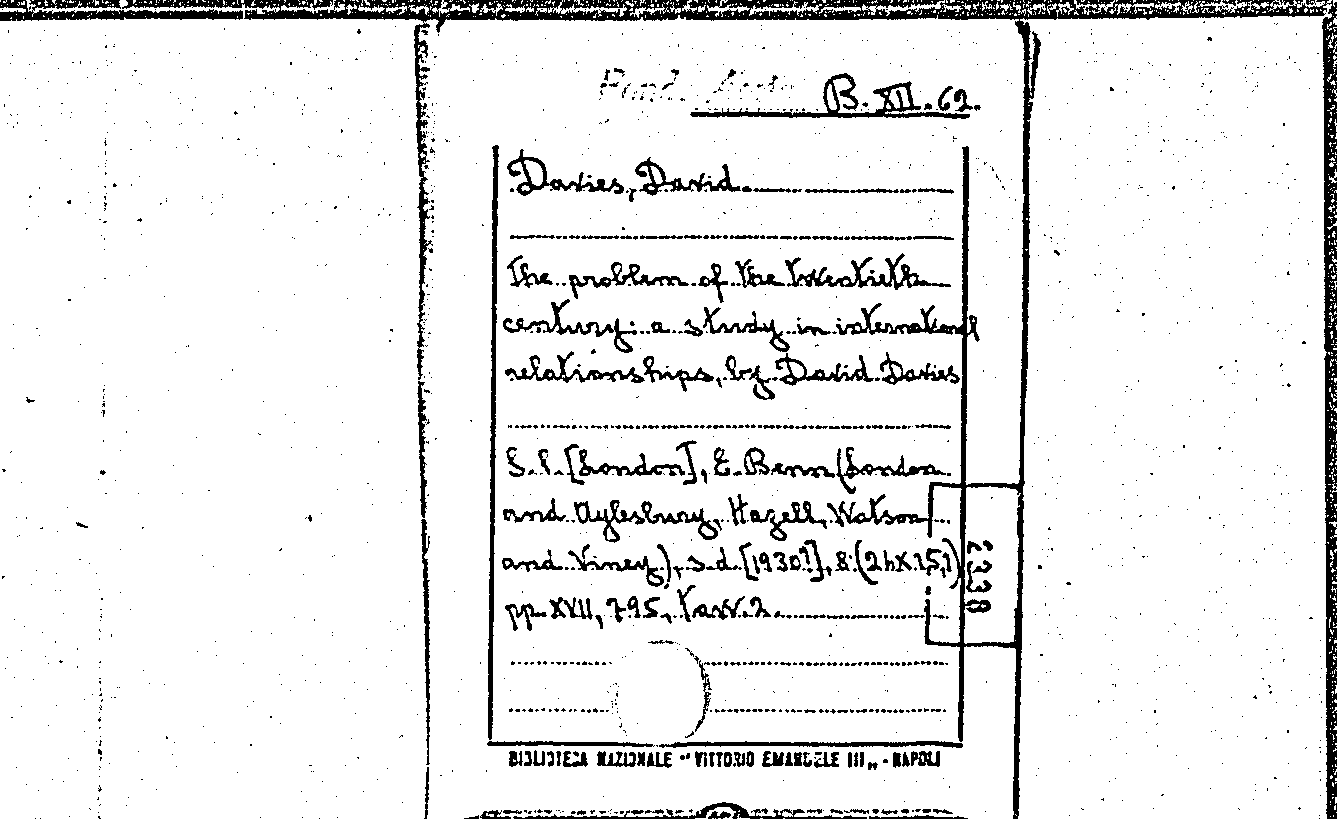 Fond. B. XII. 62.
Davies, David.
The problem of the twentieth
century: a study in international
relationships, by David Davies
S. l. [London], E. Benn (London
and Aylesbury, Hazell, Watson
and Viney), s. d. [1930?], 8° (24X15,1)
pp. XVII, 795, tavv. 2.
2338
BIBLIOTECA NAZIONALE "VITTORIO EMANUELE III„ - NAPOLI